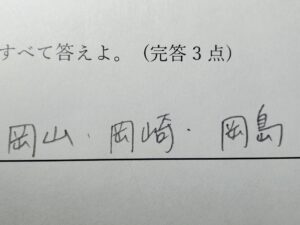 すべて答えよ。(完答3点)
岡山・岡崎・岡島